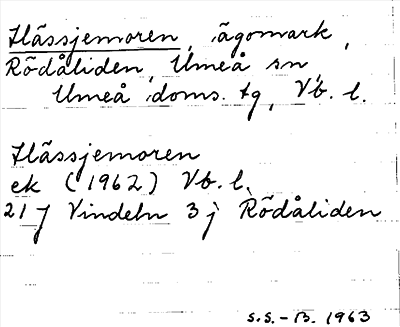 Hässjemoren, ägomark,
Rödåliden, Umeå sn,
Umeå doms. tg, Vb. l.
Hässjemoren
ek (1962) Vb. l.
21 J Vindeln 3 j Rödåliden
S.S. - B. 1963